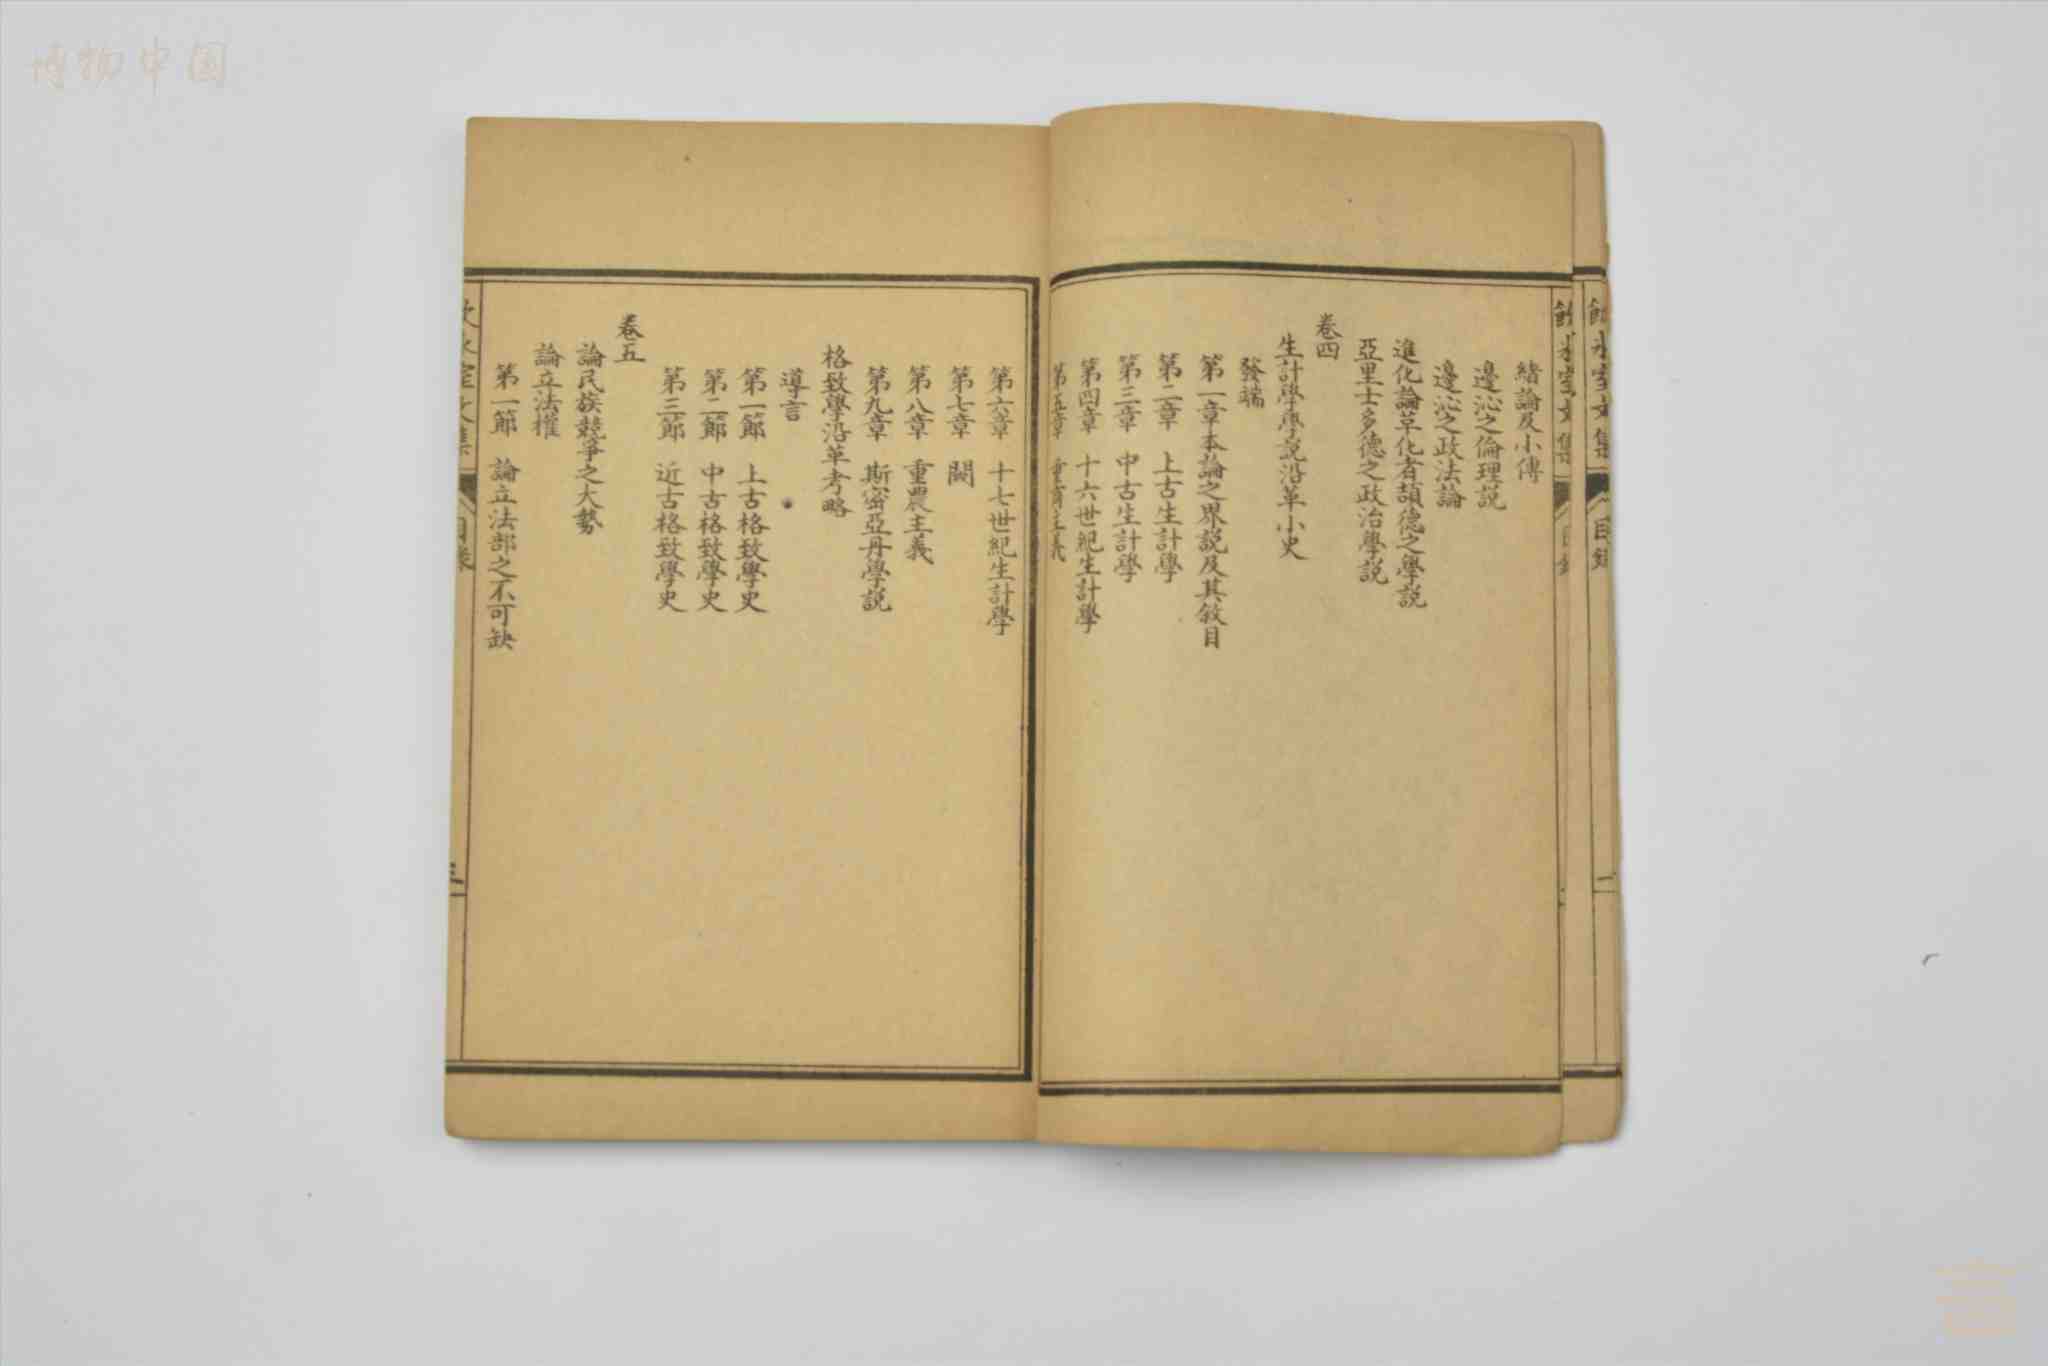 博物中国
飲冰室文集
目錄
緒論及小傳
邊沁之倫理說
邊沁之政法論
進化論革化者頡德之學說
亞里士多德之政治學說
卷四
生計學學說沿革小史
發端
第一章本論之界說及其敘目
第二章 上古生計學
第三章 中古生計學
第四章 十六世紀生計學
第五章 重商主義
第六章 十七世紀生計學
第七章 闕
第八章 重農主義
第九章 斯密亞丹學說
格致學沿革考略
導言
第一節 上古格致學史
第二節 中古格致學史
第三節 近古格致學史
卷五
論民族競爭之大勢
論立法權
第一節 論立法部之不可缺